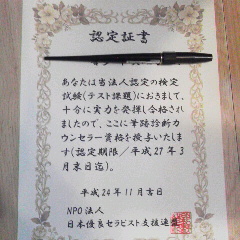 認定証書
あなたは当法人認定の検定
試験(テスト課題)におきまして、
十分に実力を発揮し合格され
ましたので、ここに筆跡診断カ
ウンセラー資格を授与いたしま
す
(認定期限/平成27年3
月末日迄)。
平成24年11月吉日
NPO法人
日本優良セラピスト支援連